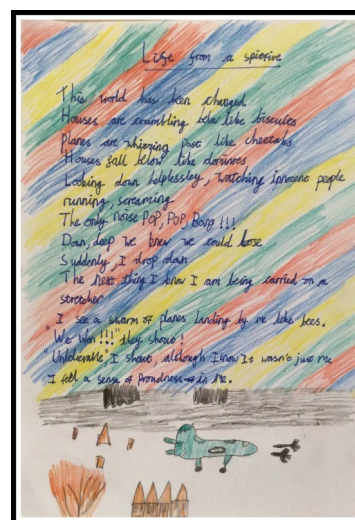 Life from a spitfire
This world has been changed
Houses are crumbling below like biscuits
Planes are whizzing past like cheetahs
Houses fall below like dominoes
Looking down helplessley, watching innocent people
running, screaming
The only noise POP, POP, Bang !!!
Down, deep we knew we could lose
Suddenly, I drop down
The next thing I know I am being carried on a
stretcher
I see a swarm of planes landing by me like bees.
"We Won!!!" they shout!
"Unbleivable", I shout, although I know It wasn't just me
I felt a sense of Proudness in me.